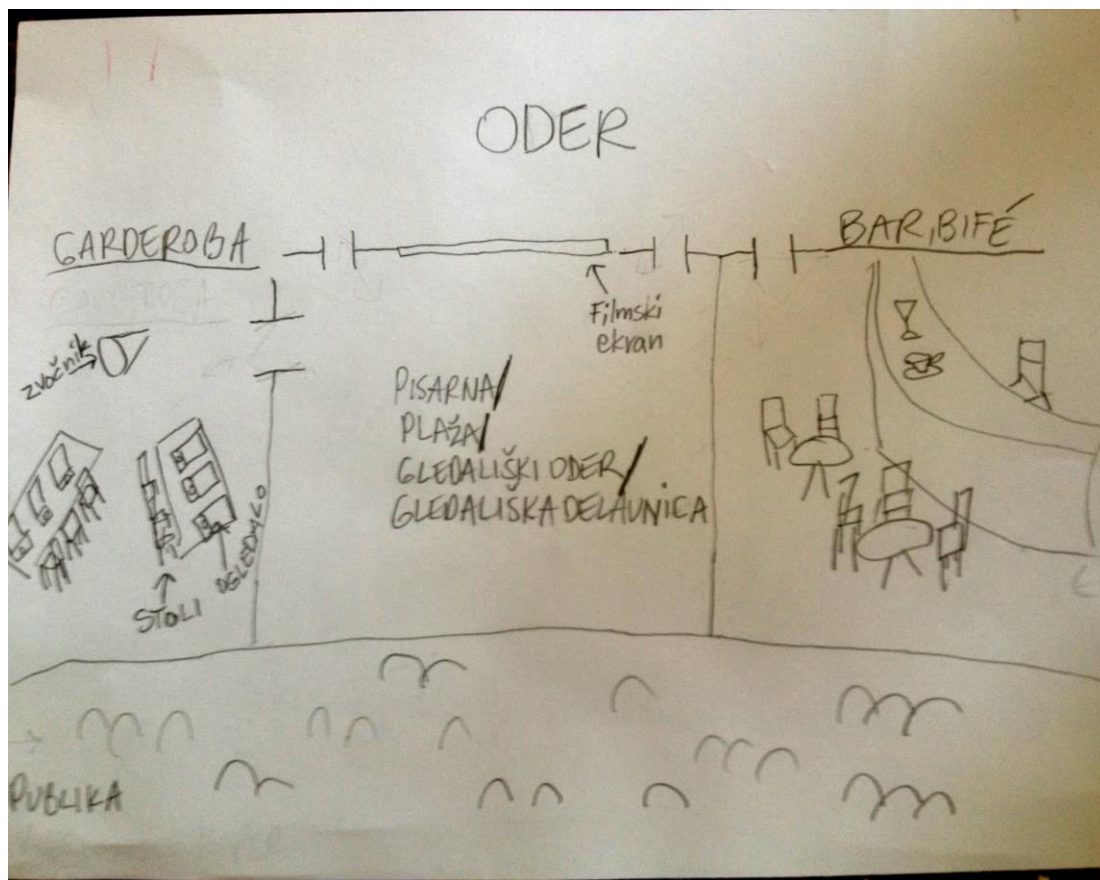 ODER
GARDEROBA
BAR, BIFÉ
Filmski
ekran
zvočnik
PISARNA/
PLAŽA/
GLEDALIŠKI ODER/
GLEDALIŠKA DELAVNICA
OGLEDALO
STOLI
PUBLIKA